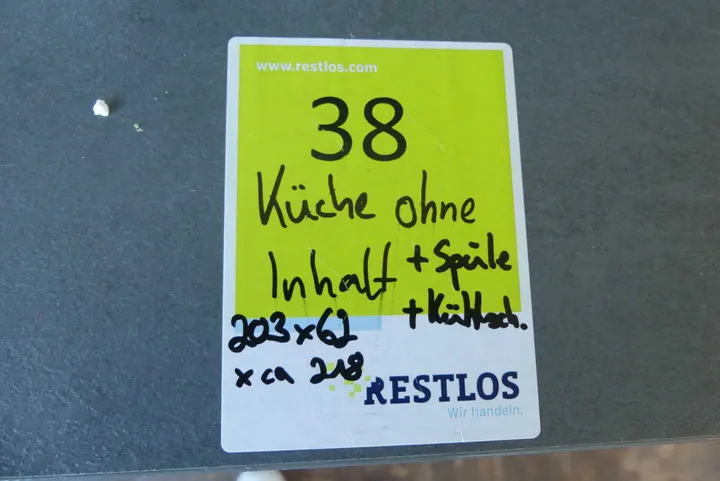 www.restlos.com
38
Küche ohne
Inhalt + Spüle
+ Kühlsch.
203 x 62
x ca 218
RESTLOS
Wir handeln.